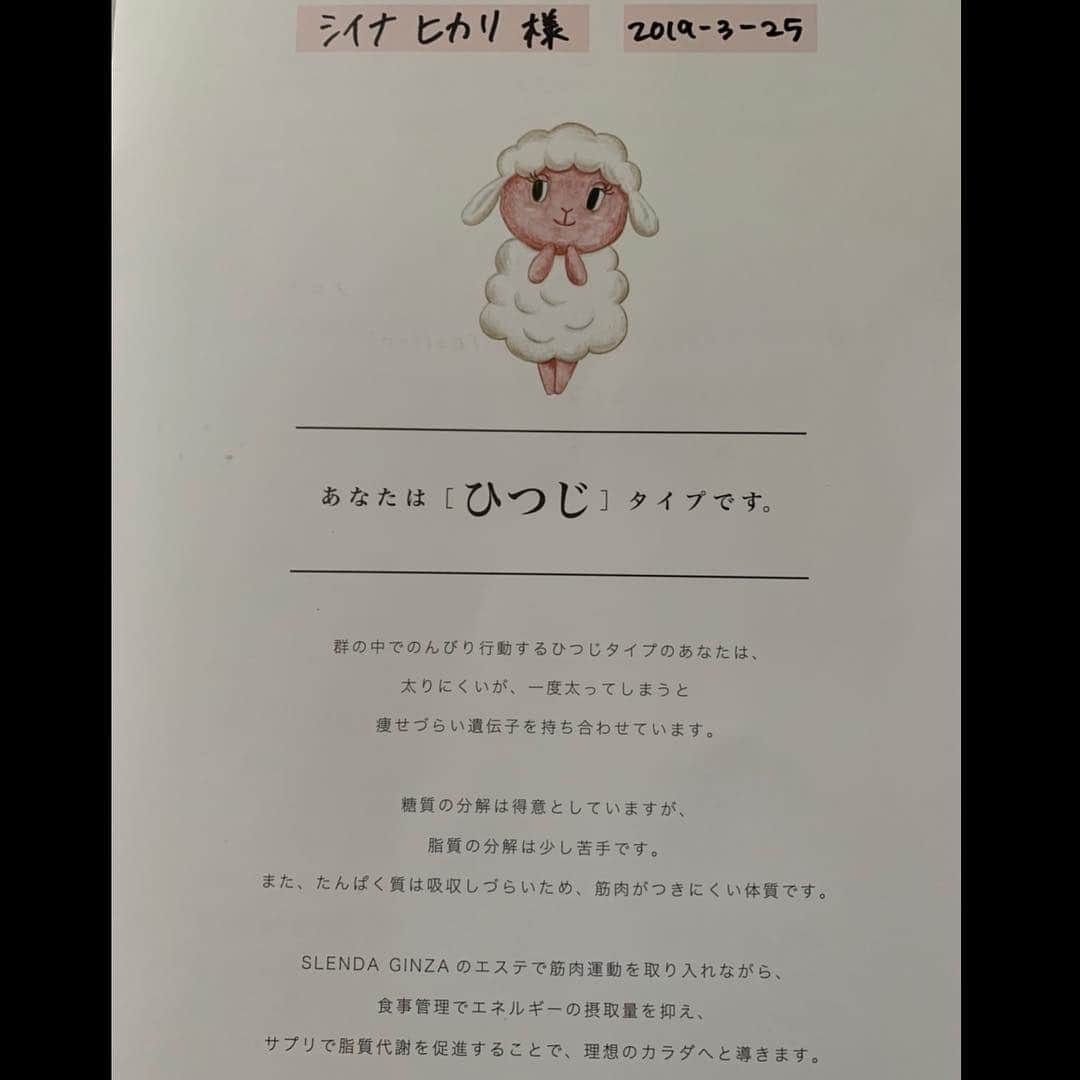 シイナ ヒカリ 様 2019-3-25
あなたは［ひつじ］タイプです。
群の中でのんびり行動するひつじタイプのあなたは、
太りにくいが、一度太ってしまうと
痩せづらい遺伝子を持ち合わせています。
糖質の分解は得意としていますが、
脂質の分解は少し苦手です。
また、たんぱく質は吸収しづらいため、筋肉がつきにくい体質です。
SLENDA GINZAのエステで筋肉運動を取り入れながら、
食事管理でエネルギーの摂取量を抑え、
サプリで脂質代謝を促進することで、理想のカラダへと導きます。